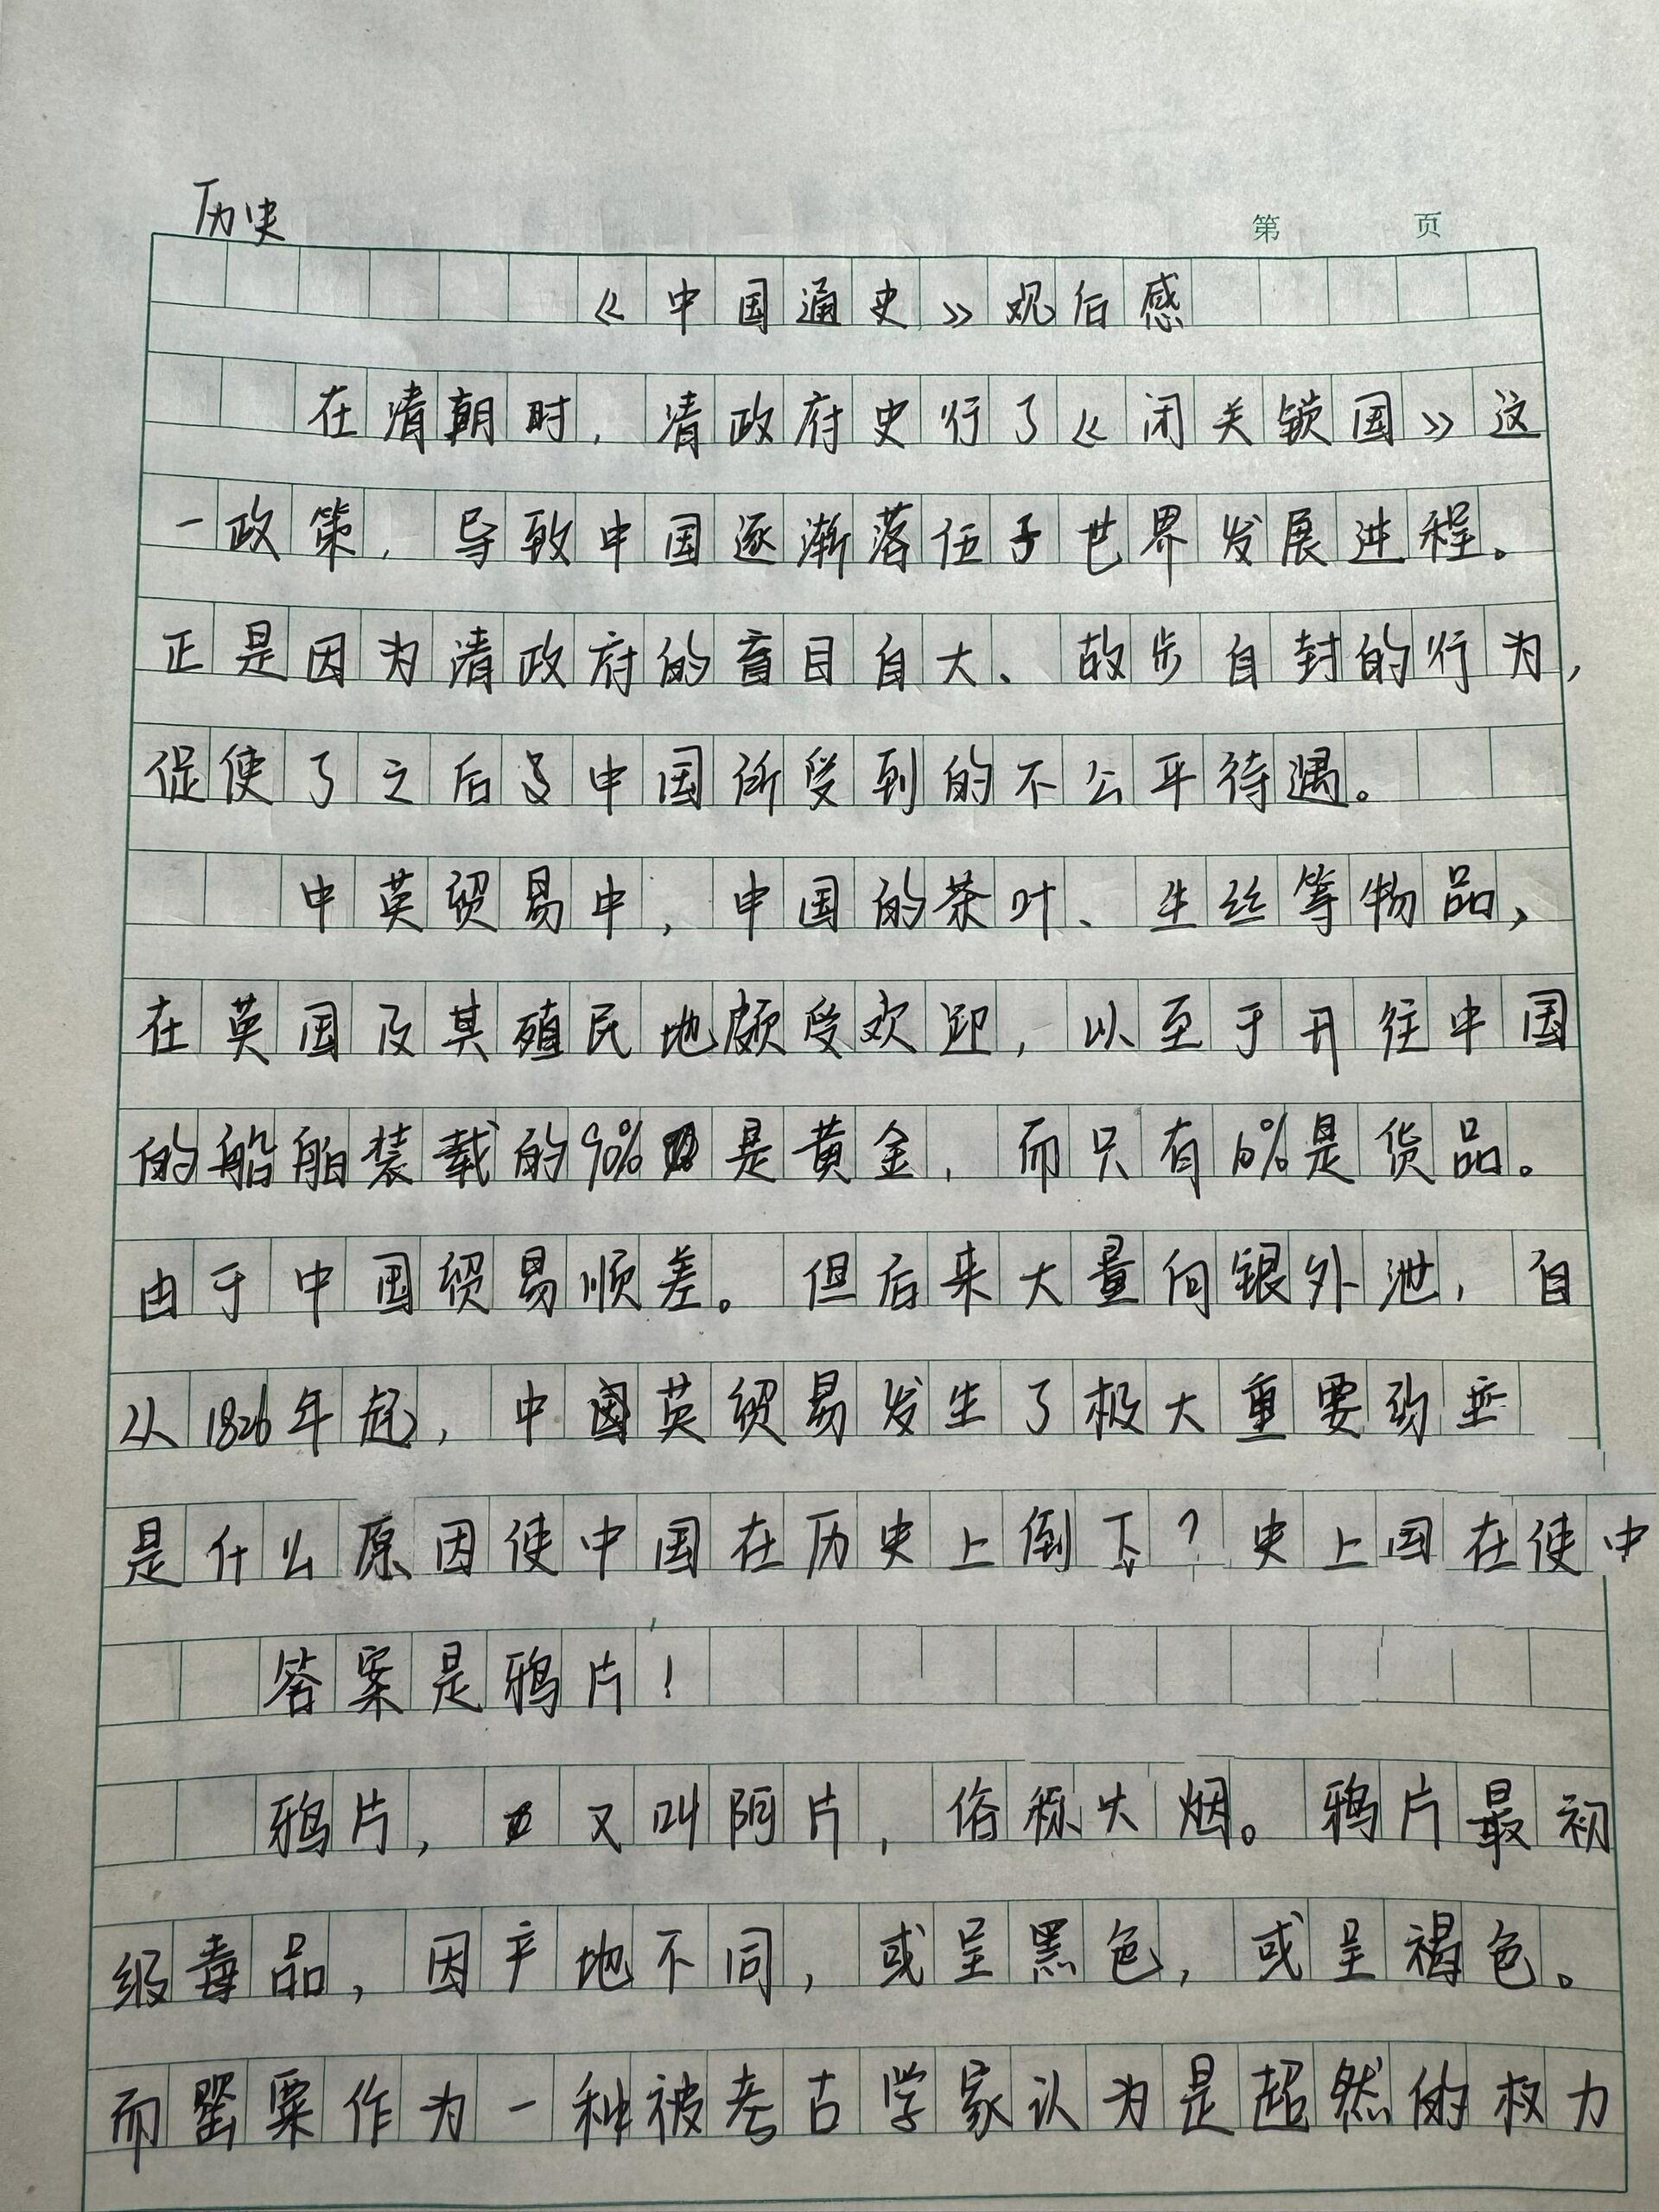 历史
第 页
《中国通史》观后感
在清朝时，清政府史行了《闭关锁国》这
一政策，导致中国逐渐落伍于世界发展进程。
正是因为清政府的盲目自大、故步自封的行为，
促使了之后中国所受到的不公平待遇。
中英贸易中，中国的茶叶、生丝等物品，
在英国及其殖民地颇受欢迎，以至于开往中国
的船舶装载的90%是黄金，而只有10%是货品。
由于中国贸易顺差。但后来大量向银外泄，自
从1826年起，中英贸易发生了极大重要的
是什么原因使中国在历史上倒下？史上国在使中
答案是鸦片！
鸦片，又叫阿片，俗称大烟。鸦片最初
级毒品，因产地不同，或呈黑色，或呈褐色。
而罂粟作为一种被考古学家认为是超然的权力